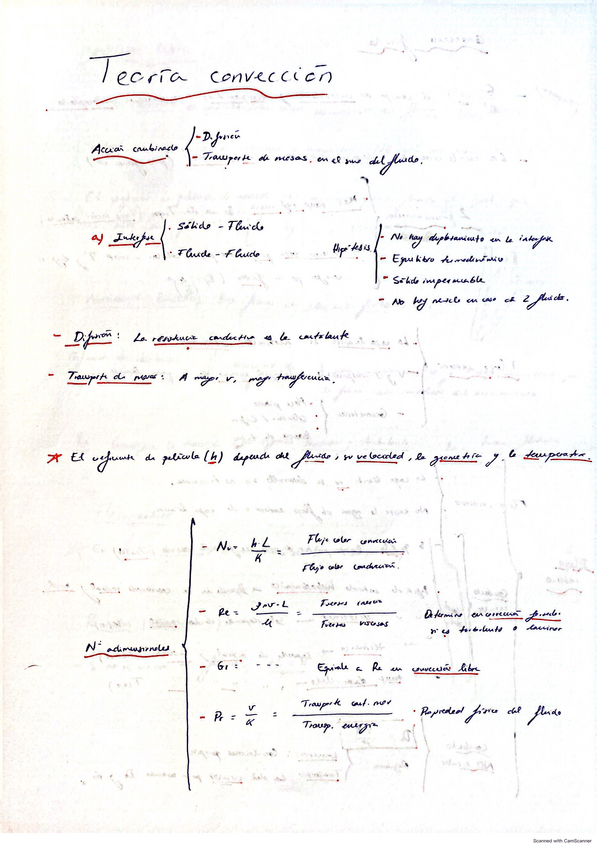 Teoría convección
Acción combinada - Difusión
- Transporte de masas en el seno del fluido.
a) Interfase · Sólido - Fluido
· Fluido - Fluido
Hipótesis - No hay deslizamiento en la interfase
- Equilibrio termodinámico
- Sólido impermeable
- No hay mezcla en caso de 2 fluidos.
- Difusión: La resistencia conductiva es la controlante
- Transporte de masas: A mayor v, mayor transferencia.
* El coeficiente de película (h) depende del fluido, su velocidad, la geometría y la temperatura.
Nº adimensionales
- Nu = h·L / K = Flujo calor convección / Flujo calor conducción
- Re = ·v·L / μ = Fuerzas inercia / Fuerzas viscosas
Determina en convección forzada
si es turbulento o laminar
- Gr = ---- Equivale a Re en convección libre
- Pr = ν / α = Transporte cant. mov / Transp. energía · Propiedad física del fluido
Scanned with CamScanner